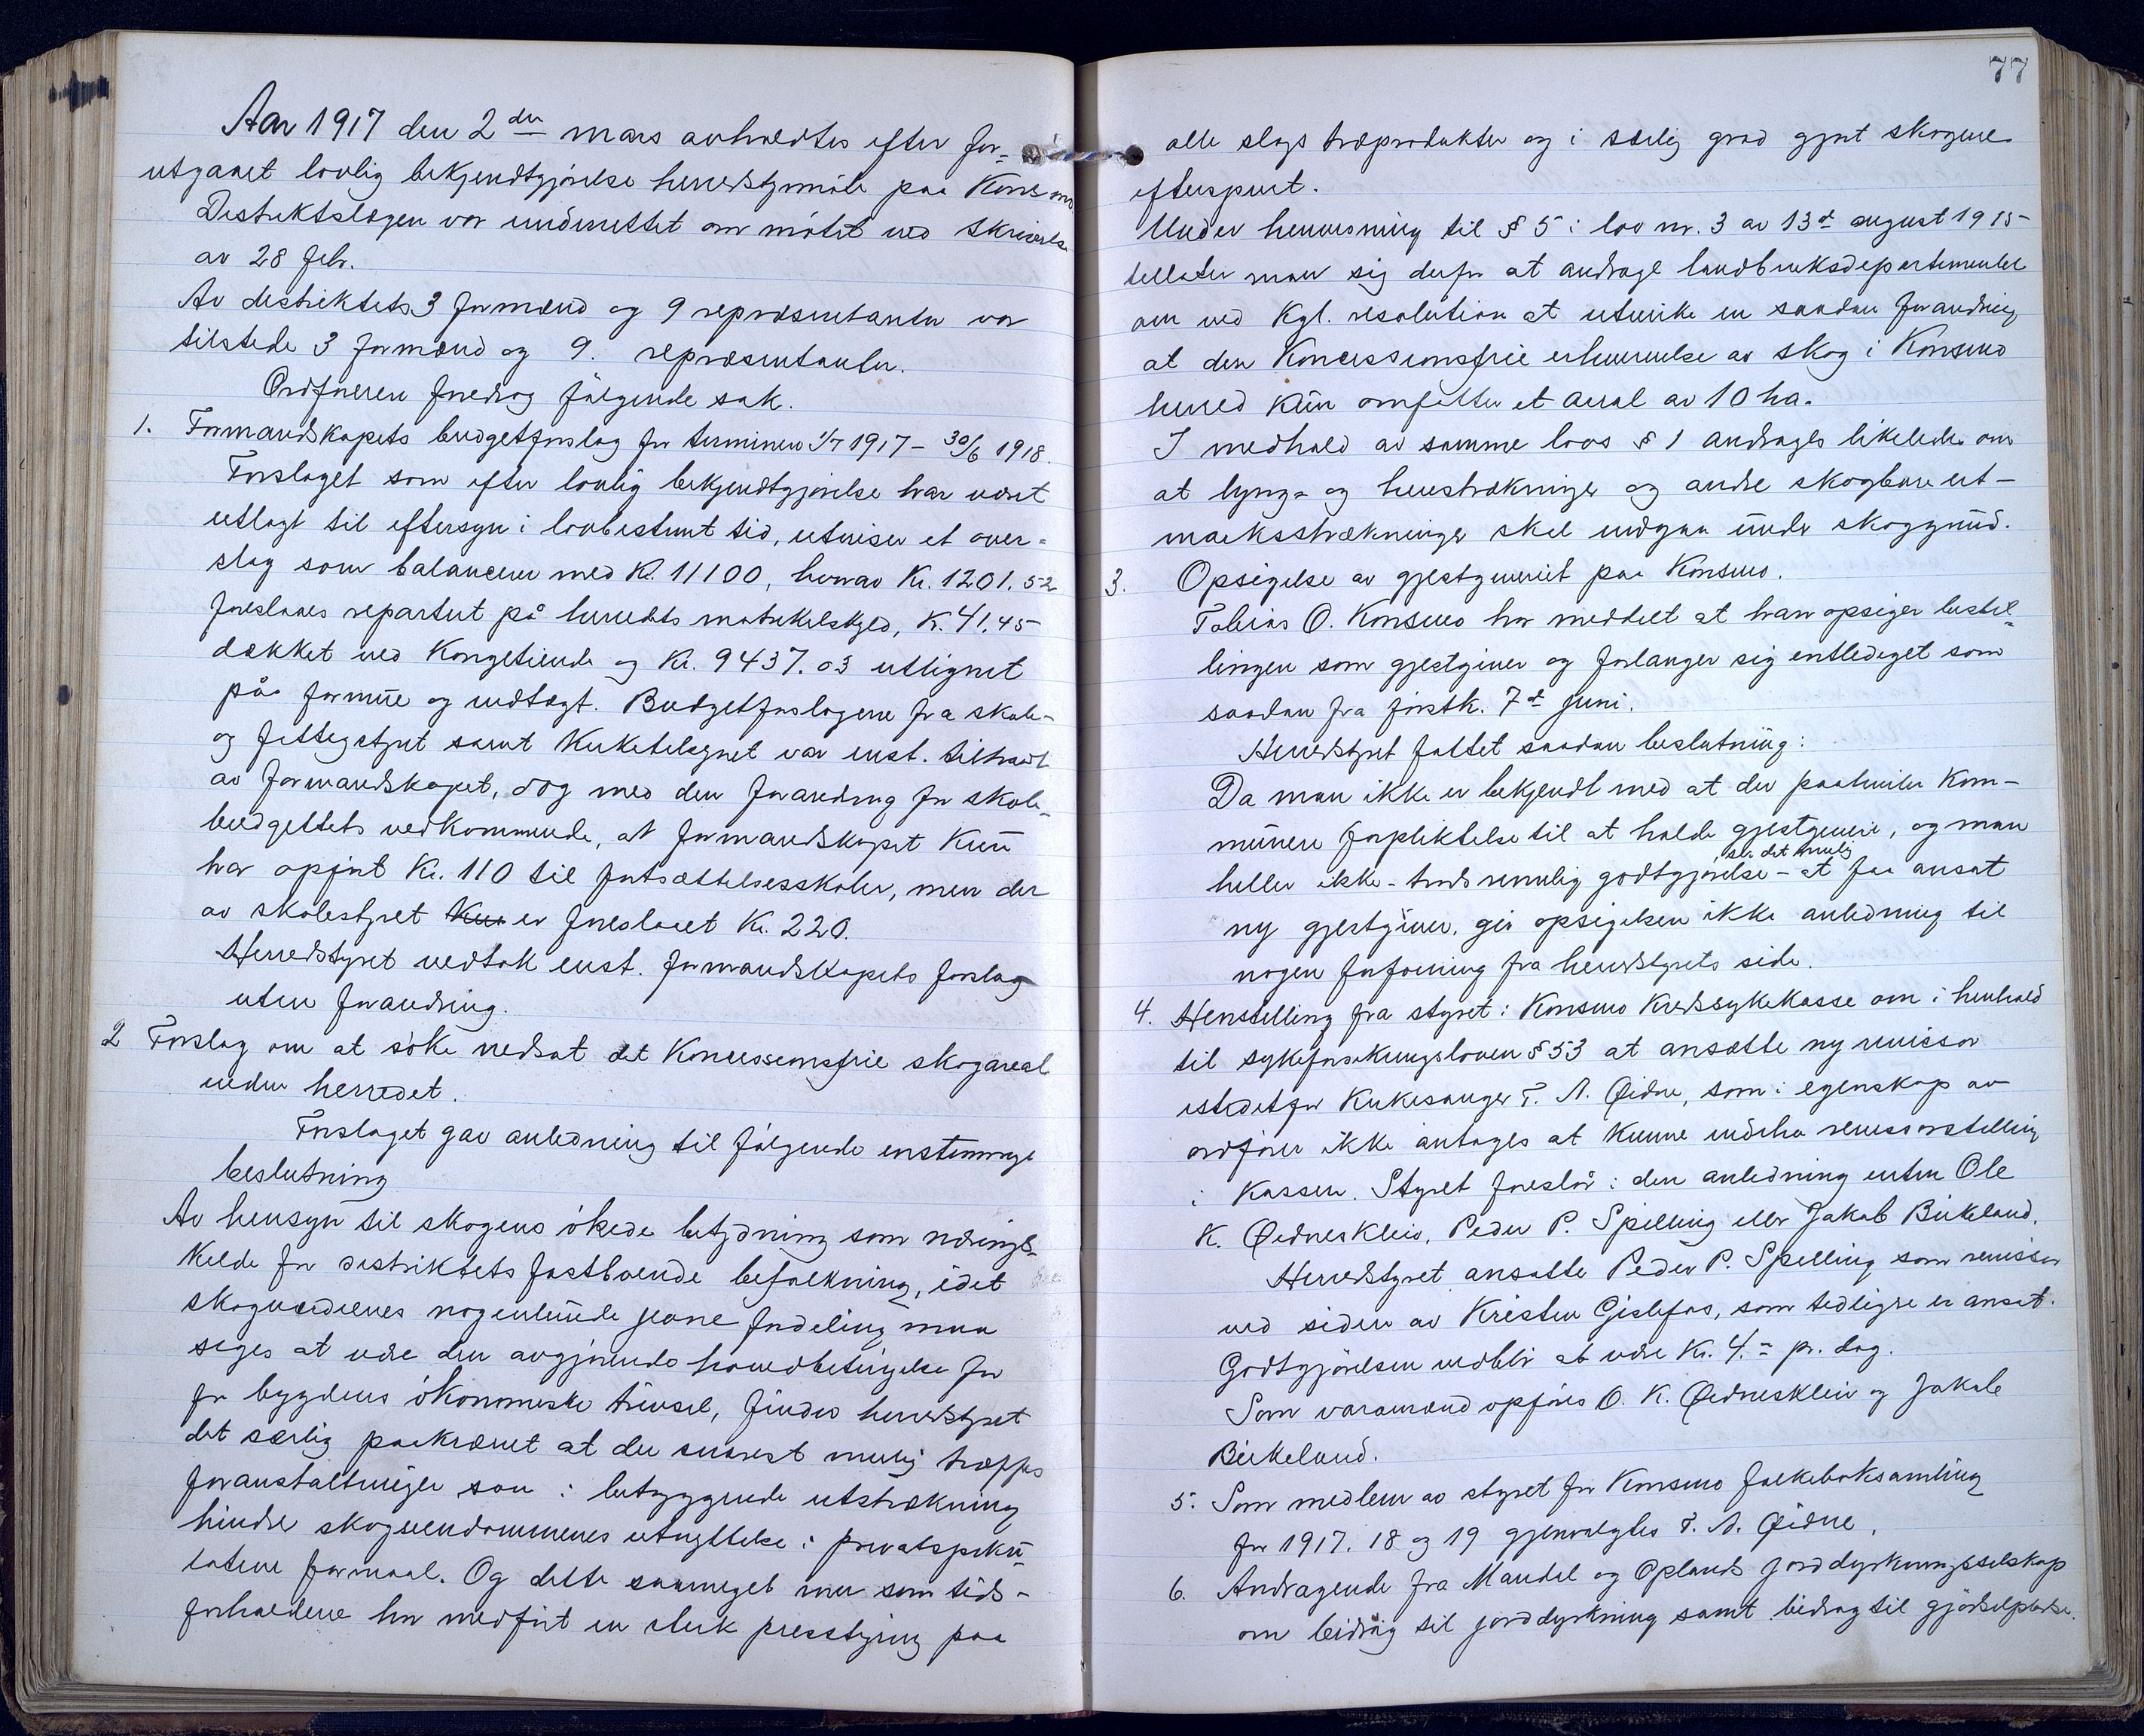 Aar 1917 den 2den mars avholdtes efter for-
utgaaet lovlig bekjendtgjörelse herredstyrmöte paa Konsmo
Distriktslægen var underrettet om mötet ved skrivelse
av 28 febr.
Av distriktets 3 formænd og 9 repræsentanter var
tilstede 3 formænd og 9. repræsentanter.
Ordföreren foredrog fölgende sak.
1. Formandskapets budgetforslag for terminen 1/7 1917 - 30/6 1918.
Forslaget som efter lovlig bekjendtgjörelse har været
utlagt til eftersyn i lovbestemt tid, utviser et over-
slag som balancerer med Kr. 11100, hvorav Kr. 1201.52
foreslaaes repartert på herredets matrikelskyld, Kr. 41.45
dækket ved Kongetiende og Kr. 9437.03 utlignet
på formue og indtægt. Budgetforslagene fra skole-
og fattigstyret samt Kirketilsynet var enst. tiltraadt
av formandskapet, dog med den forandring for skole-
budgettets vedkommende, at formandskapet Kun
har opfört Kr. 110 til fortsættelsesskoler, men der
av skolestyret Kun er foreslaaet Kr. 220.
Herredstyret vedtok enst. formandskapets forslag
uten forandring.
2 Forslag om at söke nedsat det Koncessionsfrie skogareal
inden herredet.
Forslaget gav anledning til fölgende enstemmige
beslutning
Av hensyn til skogens ökede betydning som nærings-
Kilde for distriktets fastboende befolkning, idet
skogværdienes nogenlunde jevne fordeling maa
siges at være den avgjörende hovedbetingelse for
for bygdens ökonomiske trivsel, finder herredstyret
det særlig paakrævet at der snarest mulig træffes
foranstaltninger som i betryggende utstrækning
hindre skogeiendommenes utnyttelse i privatspeku-
lative formaal. Og dette saameget mer som tids-
forholdene har medfört en sterk presstigning paa
77
alle slags træprodukter og i særlig grad gjort skogene
efterspurt.
Under henvisning til § 5 i lov nr. 3 av 13de august 1915
tillater man sig derfor at andrage landbruksdepartementet
om ved Kgl. resolution at utvirke en saadan forandring
at den Koncessionsfrie erhvervelse av skog i Konsmo
herred Kun omfatter et areal av 10 ha.
I medhold av samme lovs § 1 andrages likeledes om
at lyng- og heistrækninger og andre skogbare ut-
marksstrækninger skal indgaa under skoggrund.
3. Opsigelse av gjestgiveriet paa Konsmo.
Tobias O. Konsmo har meddelt at han opsiger bestil-
lingen som gjestgiver og forlanger sig entlediget som
saadan fra förstk. 7de juni.
Herredstyret fattet saadan beslutning:
Da man ikke er bekjendt med at der paahviler Kom-
munen forpliktelse til at holde gjestgiveri, og man
heller ikke - trods rimelig godtgjörelse - ser det mulig at faa ansat
ny gjestgiver, gir opsigelsen ikke anledning til
nogen forføining fra herredstyrets side.
4. Henstilling fra styret i Konsmo Kredssykekasse om i henhold
til sykeforsikringsloven § 53 at ansætte ny revisor
istedetfor Kirkesanger T. A. Øidne, som i egenskap av
ordförer ikke antages at Kunne indeha revisorstilling
i Kassen. Styret foreslår i den anledning enten Ole
K. Øidneskleiv, Peder P. Spilling eller Jakob Birkeland.
Herredstyret ansatte Peder P. Spilling som revisor
ved siden av Kristen Gislefos, som tidligere er ansat.
Godtgjörelsen vedblir at være Kr. 4.- pr. dag.
Som varamænd opföres O. K. Øidneskleiv og Jakob
Birkeland.
5. Som medlem av styret for Konsmo folkeboksamling
for 1917. 18 og 19 gjenvalgtes T. A. Øidne.
6. Andragende fra Mandal og Oplands jorddyrkningsselskap
om bidrag til jorddyrkning samt bidrag til gjödselplasse.